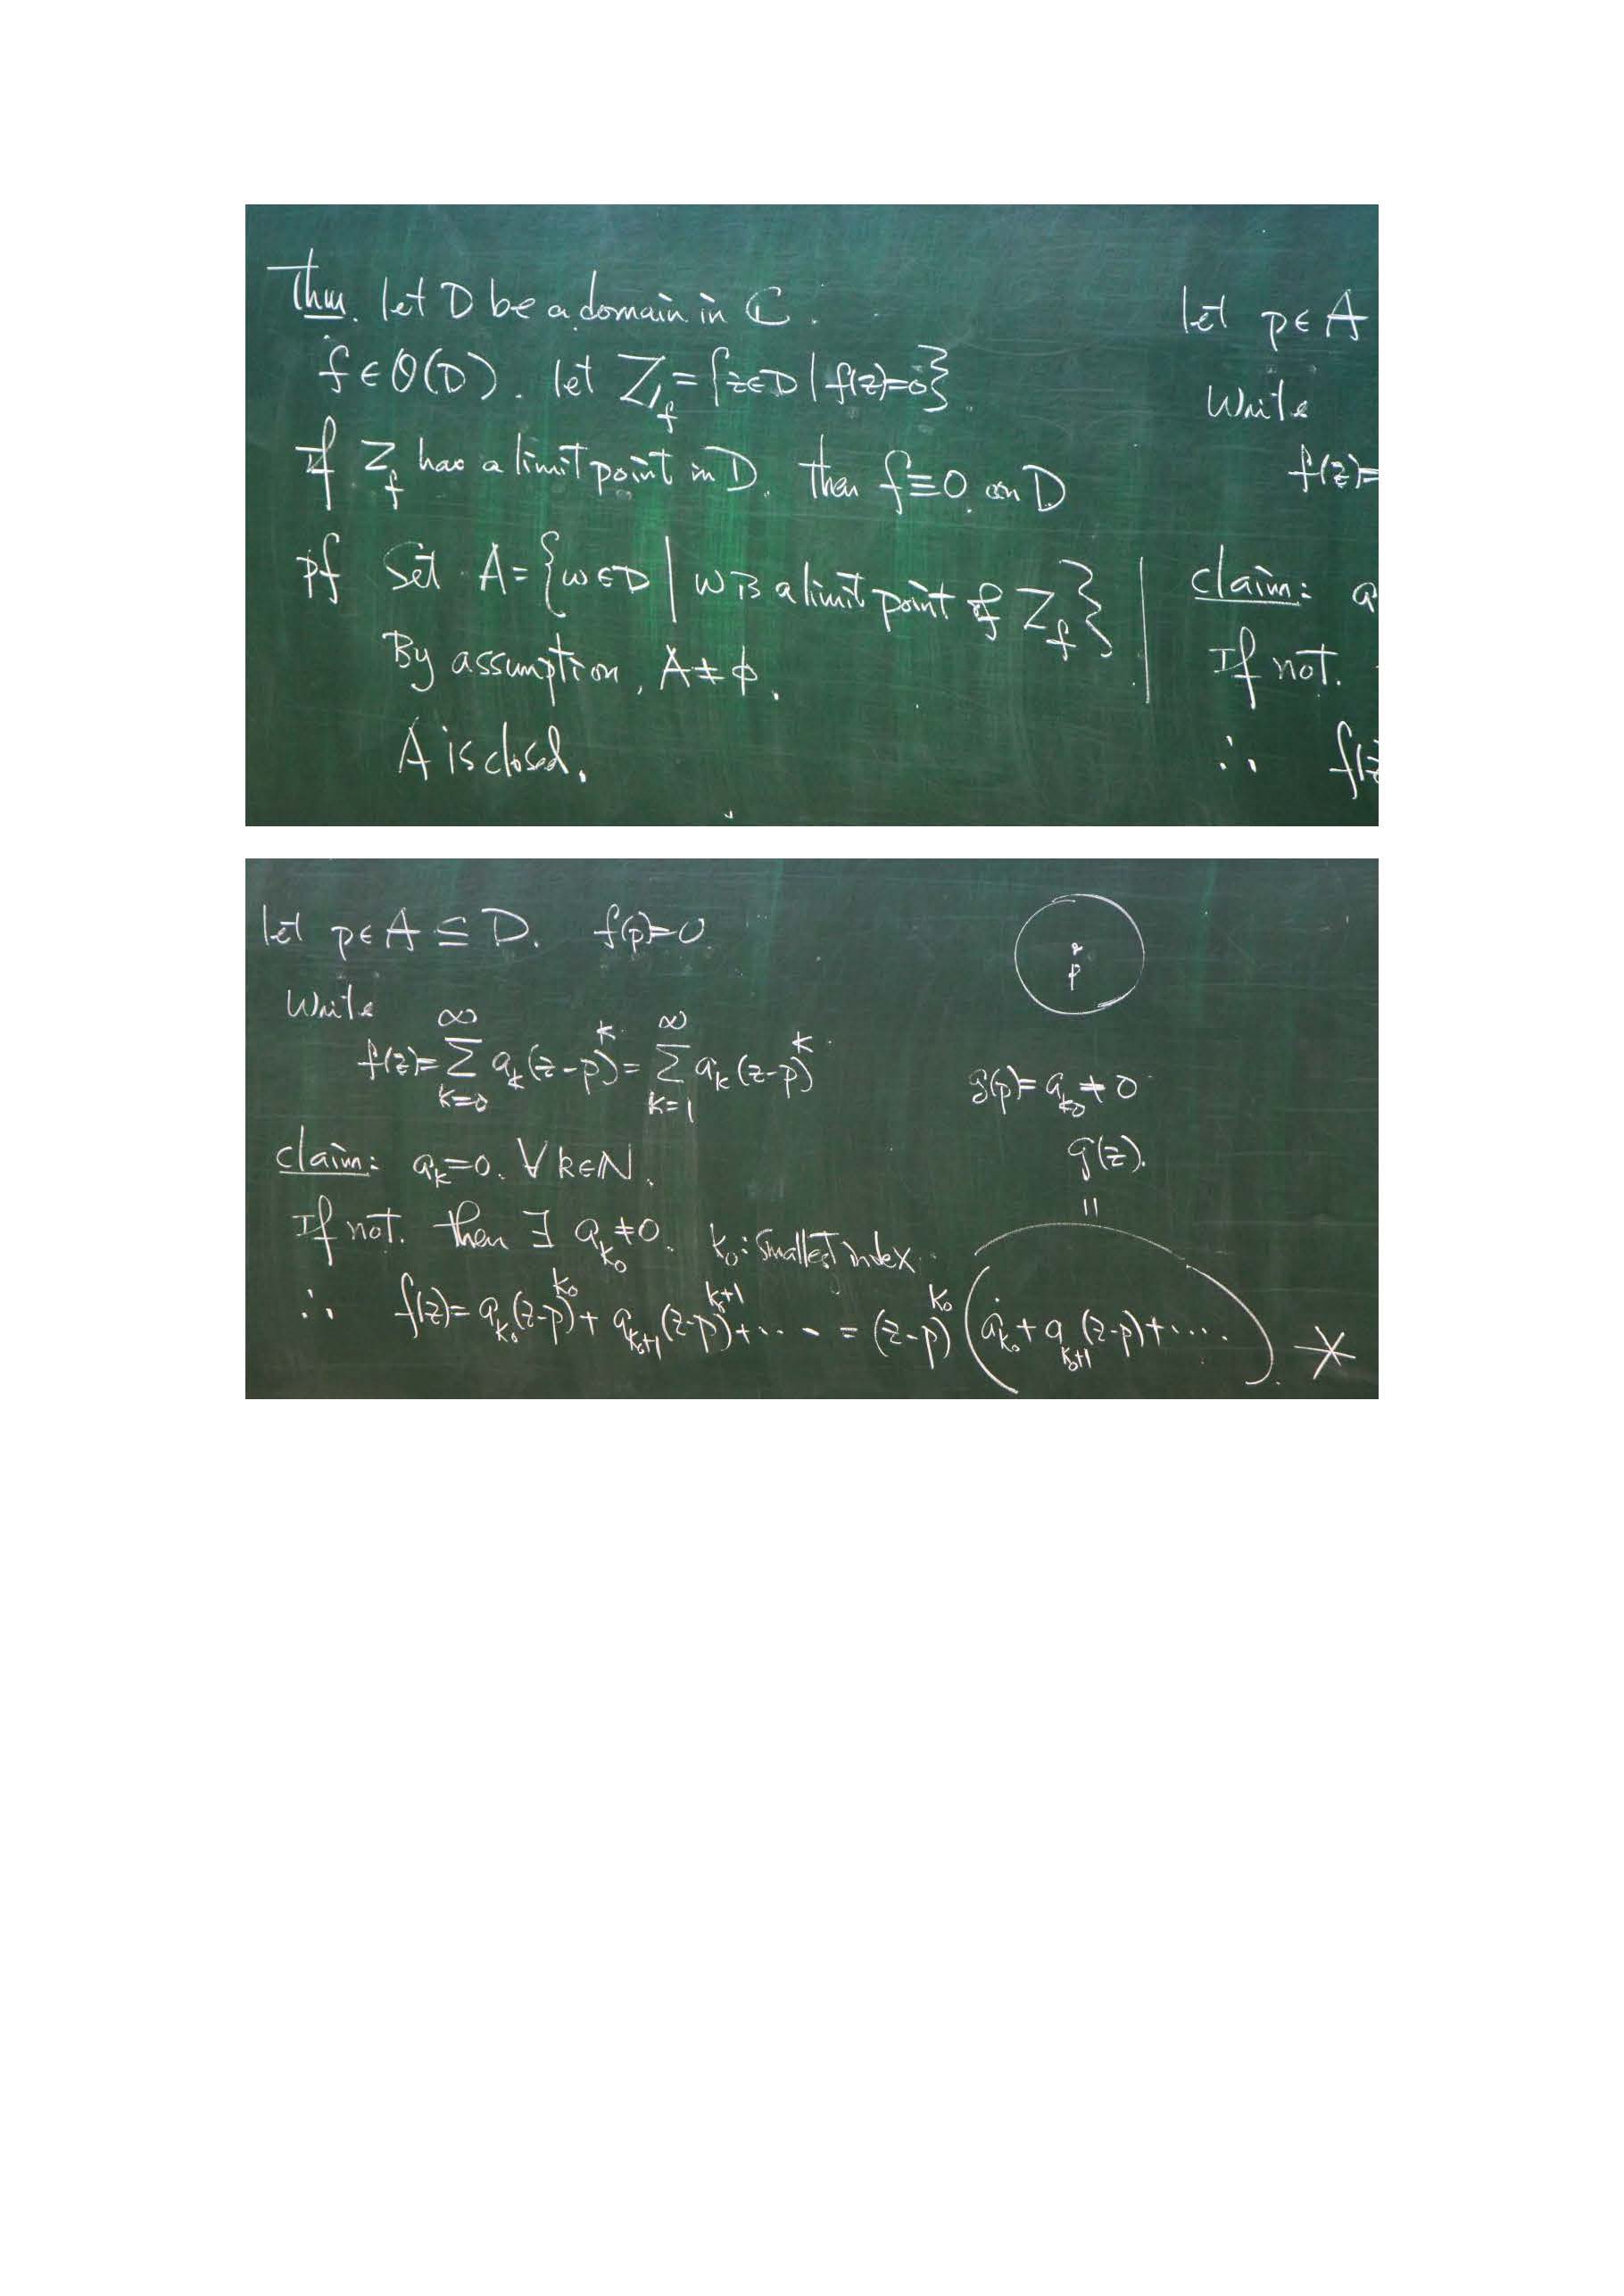 Thm. let D be a domain in ℂ.
f ∈ O(D). let Z_f = {z∈D | f(z)=0}.
If Z_f has a limit point in D. then f≡0 on D
pf Set A = {w∈D | w is a limit point of Z_f}
By assumption, A ≠ ϕ.
A is closed.
let p∈A
Write
f(z)=
claim: a
If not.
∴ f(z
let p∈A ⊆ D. f(p)=0.
p
Write
f(z) = ∑_{k=0}^{∞} a_k (z-p)^k = ∑_{k=1}^{∞} a_k (z-p)^k
g(p) = a_{k_0} ≠ 0
claim: a_k=0. ∀ k∈N.
g(z).
=
If not. then ∃ a_{k_0} ≠ 0. k_0: smallest index.
∴ f(z) = a_{k_0} (z-p)^{k_0} + a_{k_0+1} (z-p)^{k_0+1} + ···· = (z-p)^{k_0} (a_{k_0} + a_{k_0+1} (z-p) + ····). ※